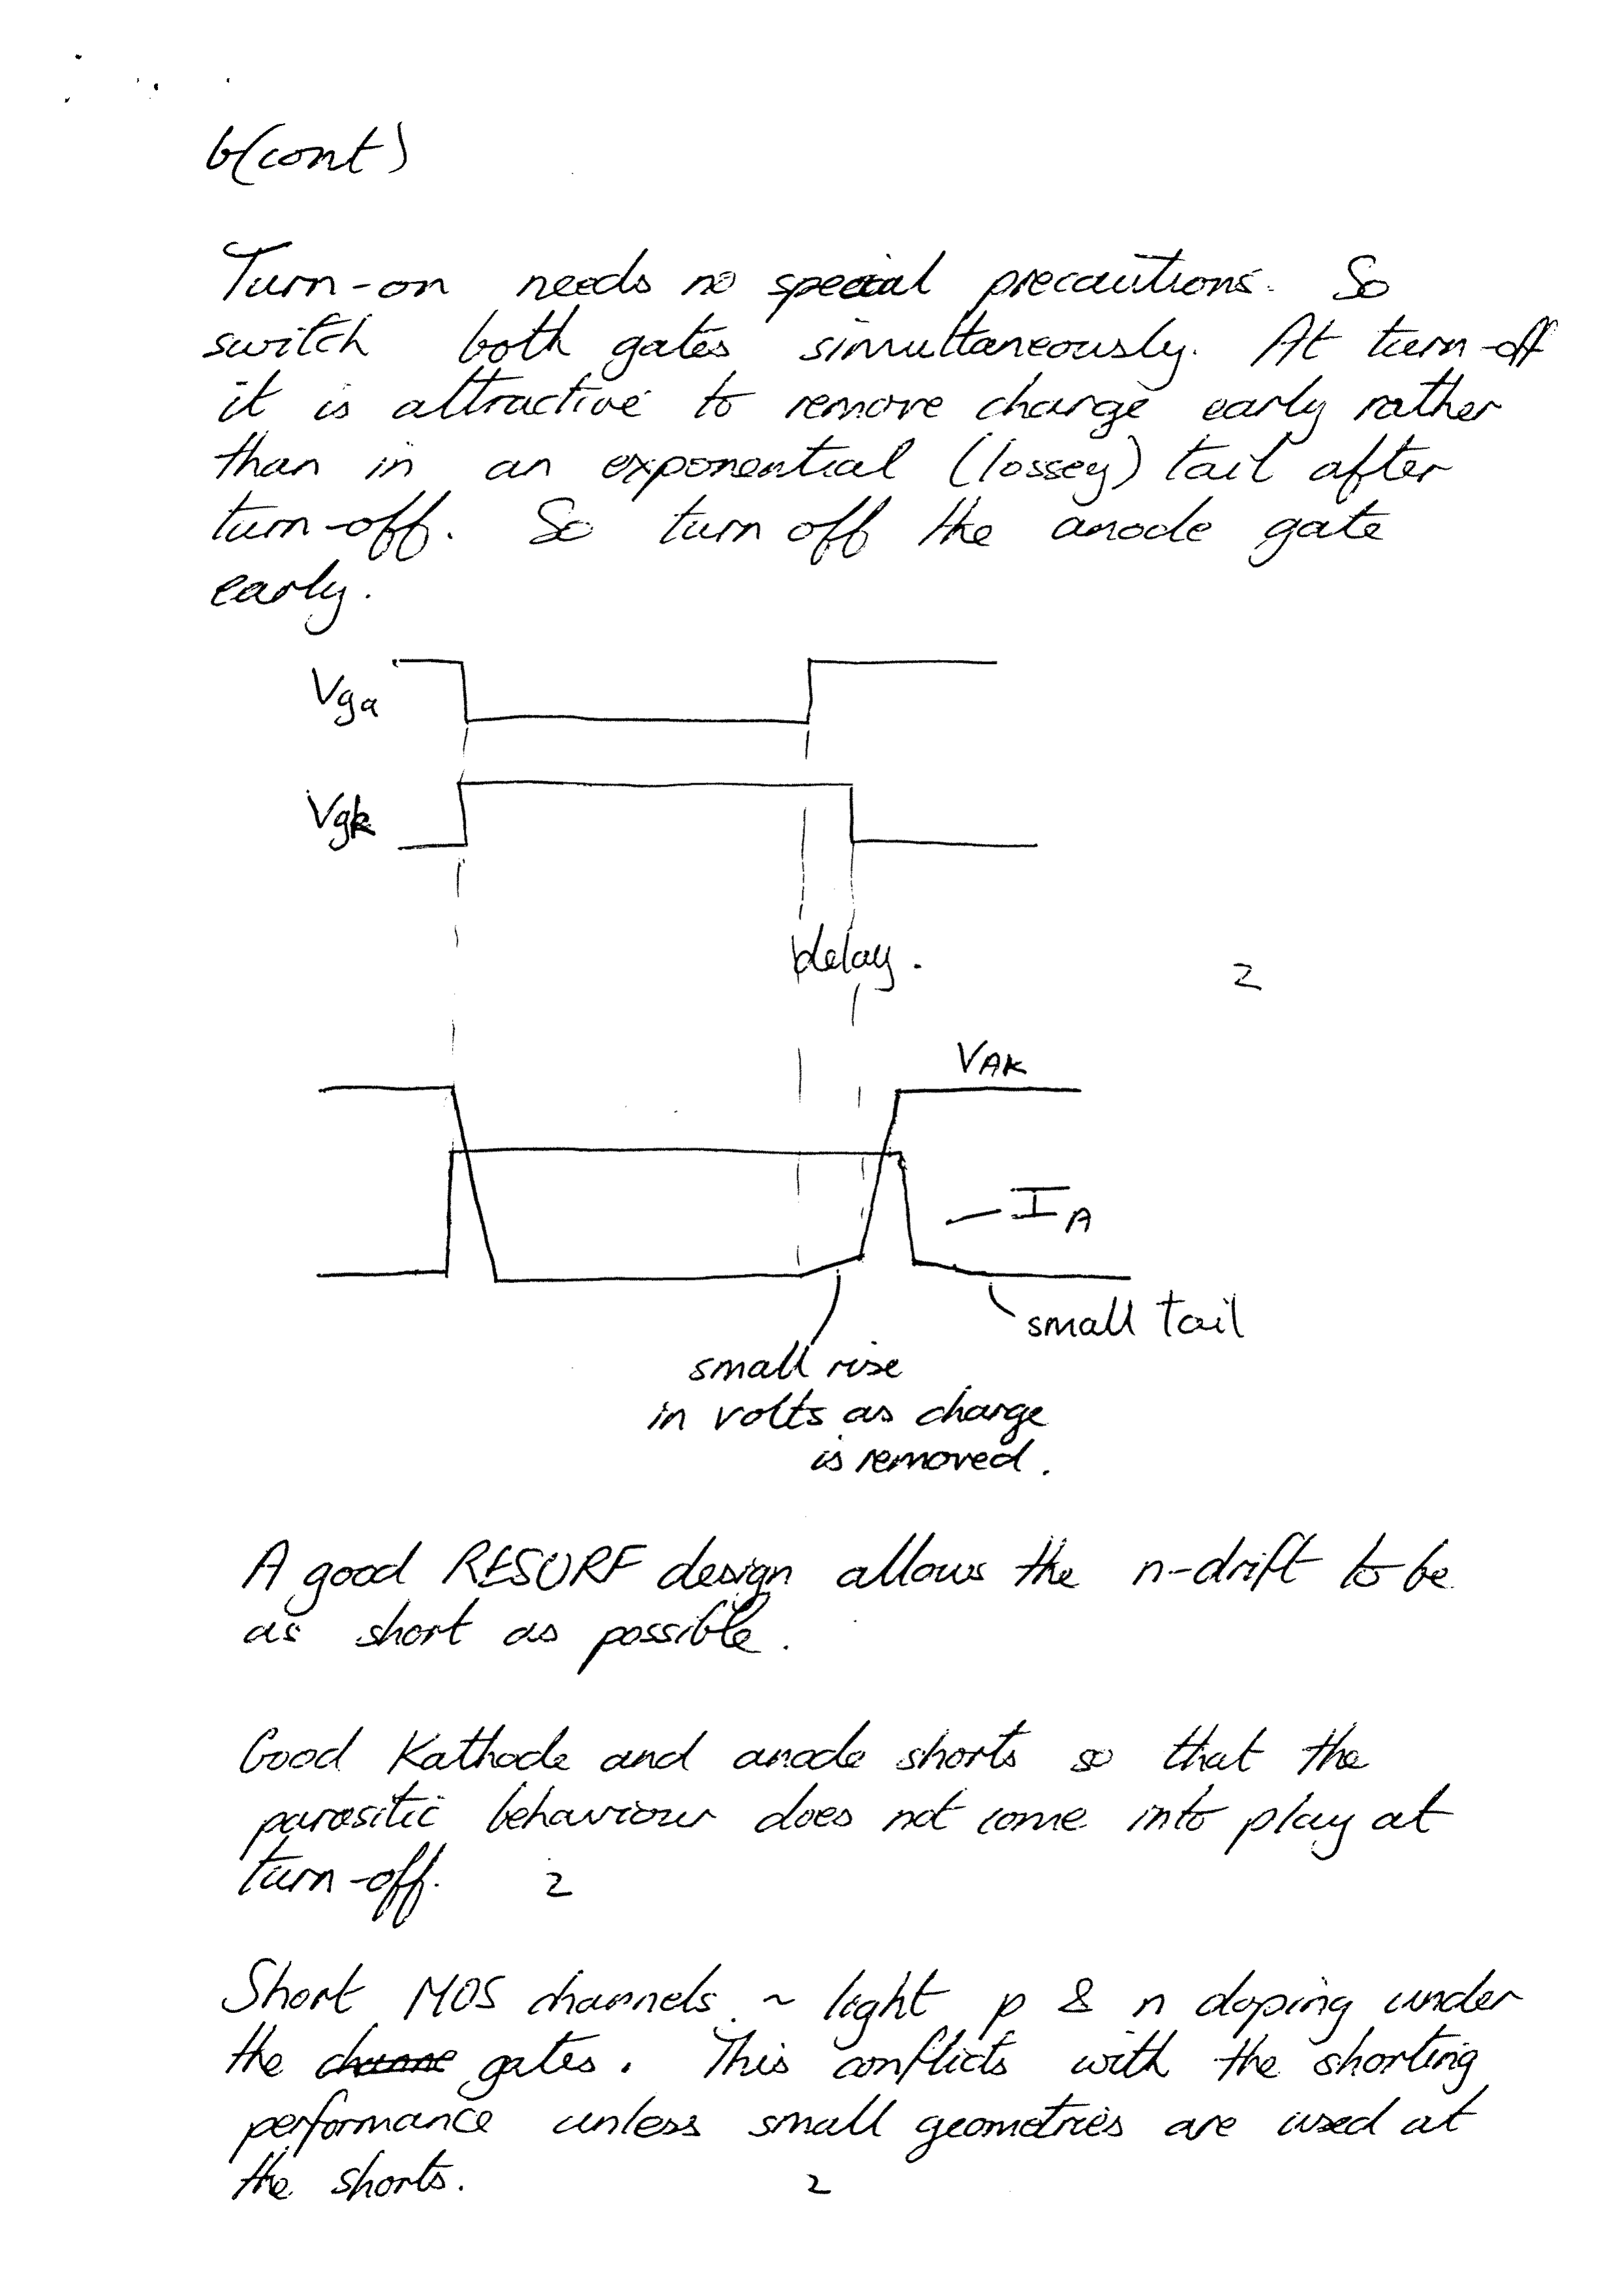 b(cont)
Turn-on needs no special precautions. So
switch both gates simultaneously. At turn-off
it is attractive to remove charge early rather
than in an exponential (lossey) tail after
turn-off. So turn off the anode gate
early.
Vga
Vgk
delay.
2
VAK
IA
small tail
small rise
in volts as charge
is removed.
A good RESURF design allows the n-drift to be
as short as possible.
Good Kathode and anode shorts so that the
parasitic behaviour does not come into play at
turn-off. 2
Short MOS channels ~ light p & n doping under
the gates. This conflicts with the shorting
performance unless small geometries are used at
the shorts. 2